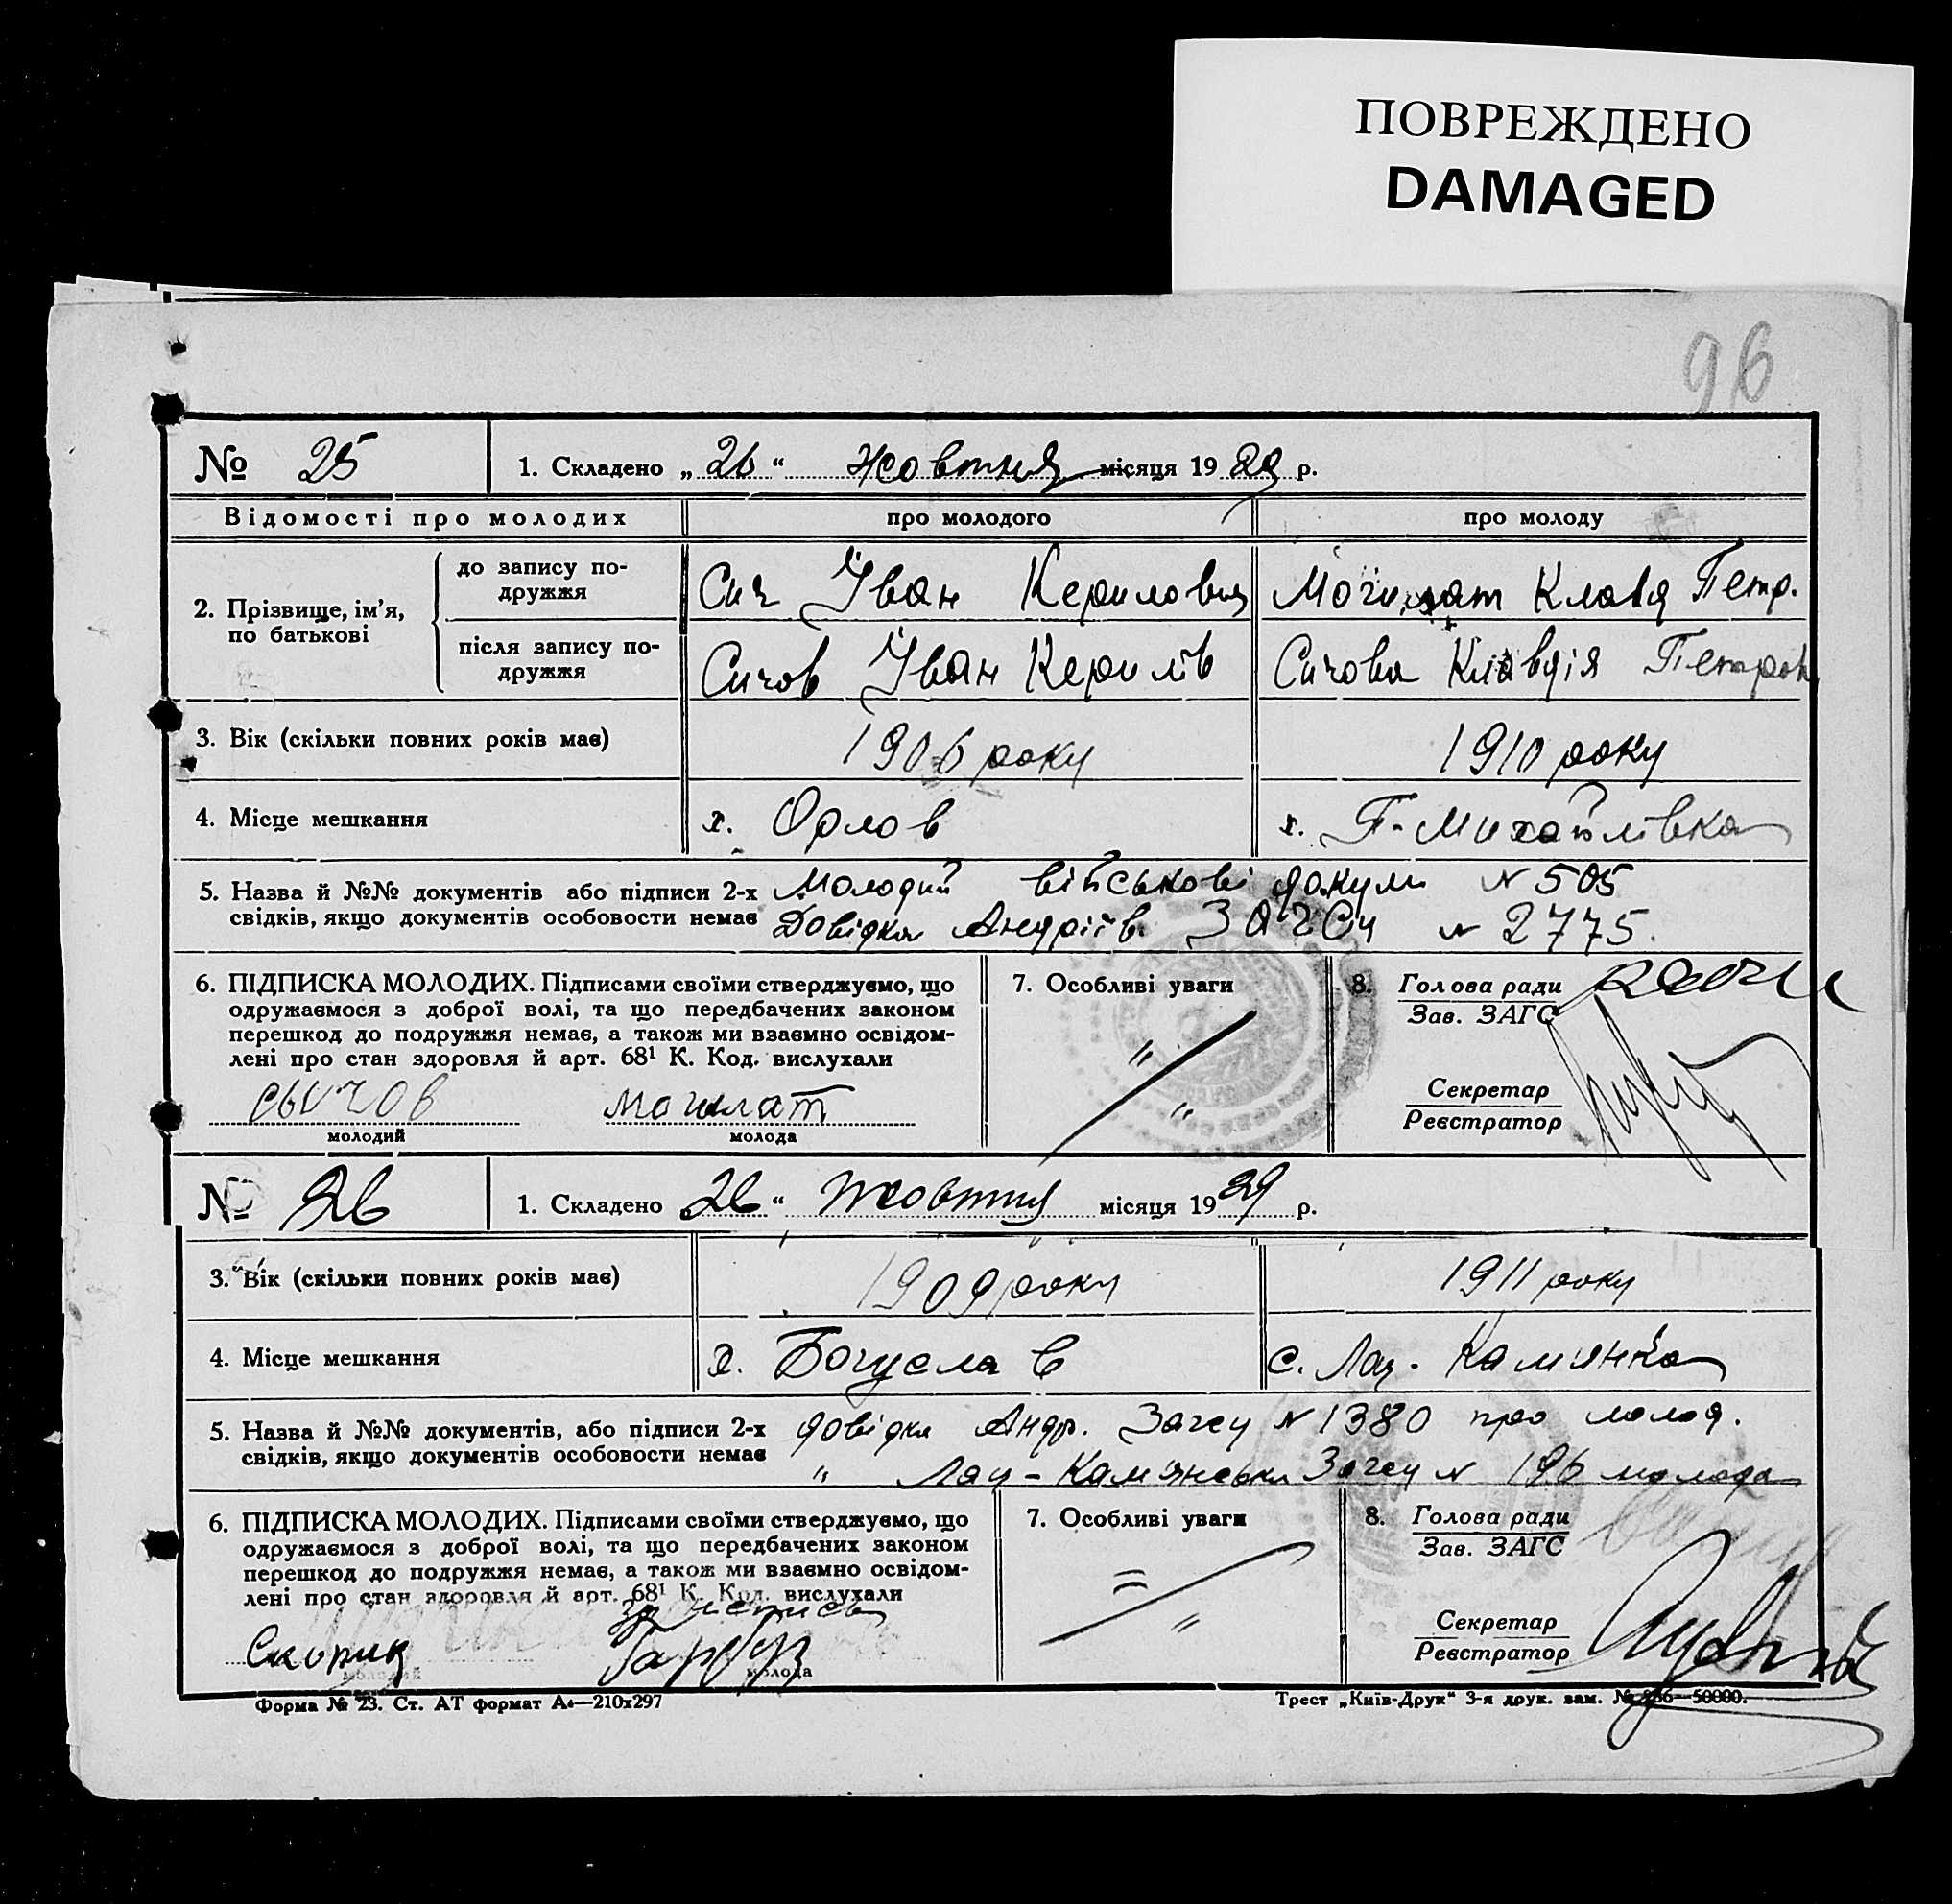 ПОВРЕЖДЕНО
DAMAGED
96
№ 25 1. Складено „26“ Жовтня місяця 1929 р.
Відомості про молодих про молодого про молоду
2. Прізвище, ім’я, по батькові
до запису по-дружжя Сич Іван Керилович Могилат Клавдя Петр.
після запису по-дружжя Сичов Іван Керилів Сичова Клавдія Петров
3. Вік (скільки повних років має) 1906 року 1910 року
4. Місце мешкання х. Орлов х. П-Михайлівка
5. Назва й №№ документів або підписи 2-х Молодий військові докум N 505
свідків, якщо документів особовости немає Довідка Андріїв ЗАГСу N 2775.
6. ПІДПИСКА МОЛОДИХ. Підписами своїми стверджуємо, що
одружаємося з доброї волі, та що передбачених законом
перешкод до подружжя немає, а також ми взаємно освідом-
лені про стан здоровля й арт. 68¹ К. Код. вислухали
сычов могилат
молодий молода
7. Особливі уваги
" "
8. Голова ради
Зав. ЗАГС
Секретар
Реєстратор
№ 26 1. Складено „26“ Жовтня місяця 1929 р.
3. Вік (скільки повних років має) 1909 року 1911 року
4. Місце мешкання х. Богуслав с. Лоц-Камянка
5. Назва й №№ документів, або підписи 2-х довідка Андр. Загсу N 1380 про молод.
свідків, якщо документів особовости немає " Лоц-Камянська Загсу N 196 молода
6. ПІДПИСКА МОЛОДИХ. Підписами своїми стверджуємо, що
одружаємося з доброї волі, та що передбачених законом
перешкод до подружжя немає, а також ми взаємно освідом-
лені про стан здоровля й арт. 68¹ К. Код. вислухали
Скорик Гарбуз
молодий молода
7. Особливі уваги
= "
8. Голова ради
Зав. ЗАГС
Секретар
Реєстратор
Форма № 23. Ст. АТ формат А₄—210х297 Трест „Київ-Друк“ 3-я друк. зам. № 50000.